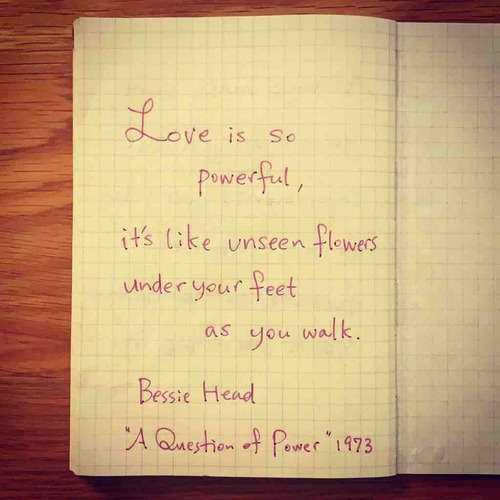 Love is so
powerful,
it's like unseen flowers
under your feet
as you walk.
Bessie Head
"A Question of Power" 1973